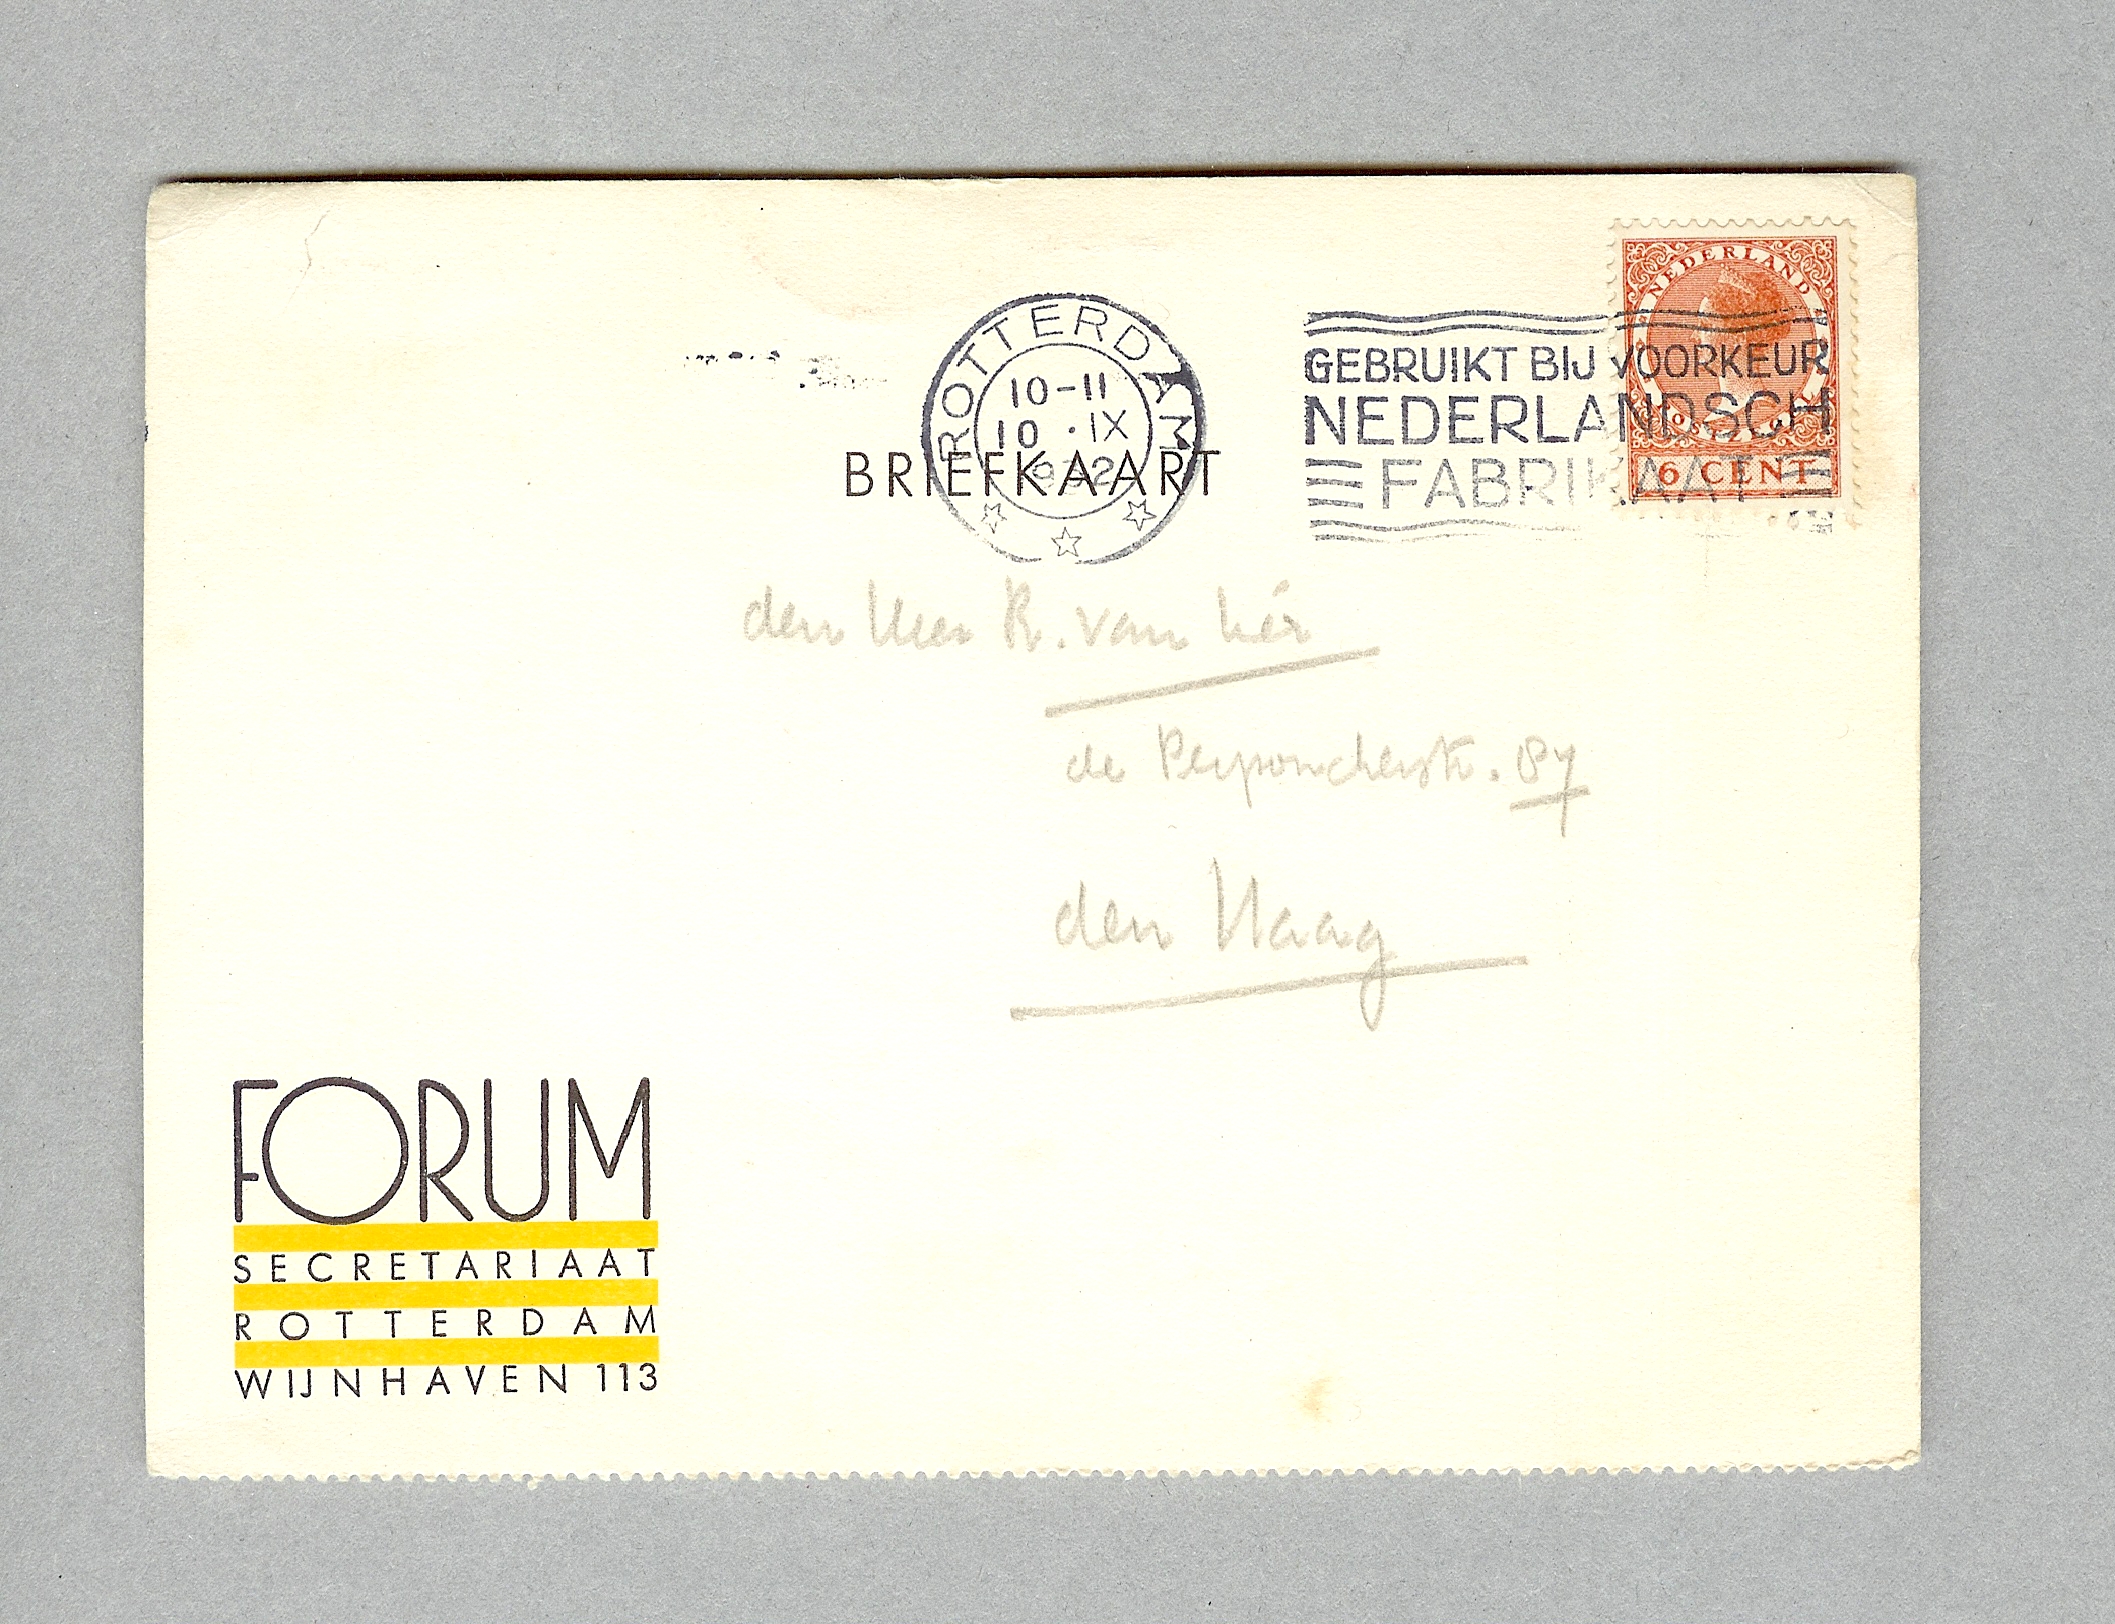 NEDERLAND
ROTTERDAM
10-11
10 · IX
1932
GEBRUIKT BIJ VOORKEUR
NEDERLANDSCH
FABRIKAAT
6 CENT
BRIEFKAART
den Heer R. van Lér
de Perponcherstr. 87
den Haag
FORUM
SECRETARIAAT
ROTTERDAM
WIJNHAVEN 113